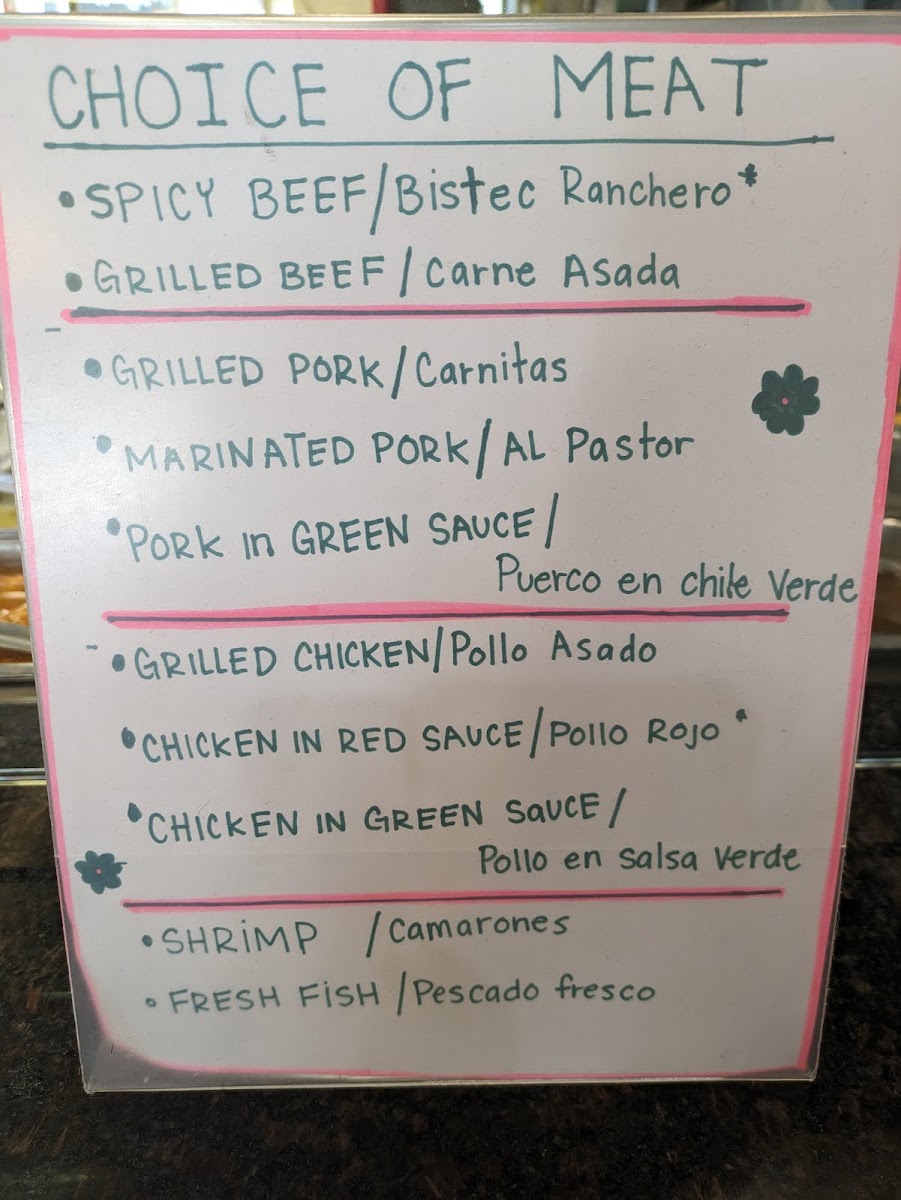 CHOICE OF MEAT
• SPICY BEEF/Bistec Ranchero*
• GRILLED BEEF/Carne Asada
• GRILLED PORK/Carnitas
• MARINATED PORK/AL Pastor
• PORK in GREEN SAUCE/
Puerco en chile Verde
• GRILLED CHICKEN/Pollo Asado
• CHICKEN IN RED SAUCE/Pollo Rojo*
• CHICKEN IN GREEN SAUCE/
Pollo en salsa verde
• SHRiMP /Camarones
• FRESH FiSH/Pescado fresco